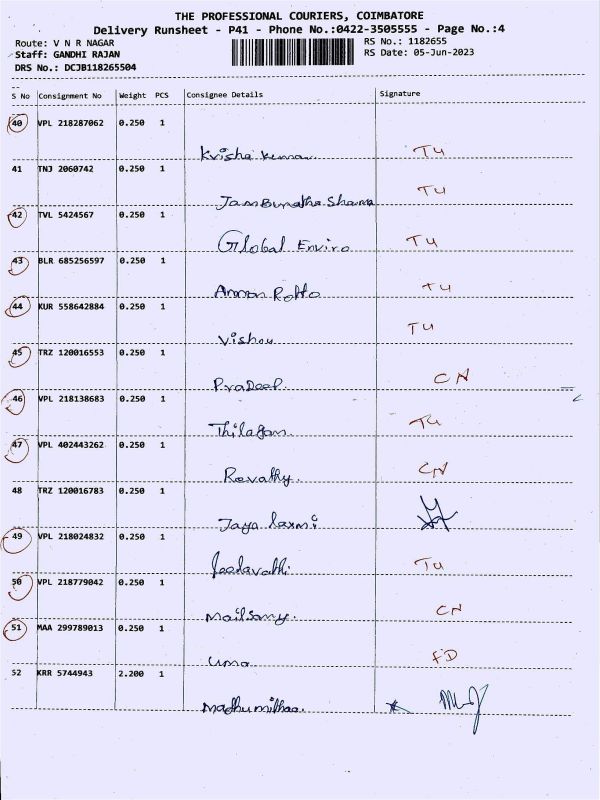 THE PROFESSIONAL COURIERS, COIMBATORE
Delivery Runsheet - P41 - Phone No.:0422-3505555 - Page No.:4
Route: V N R NAGAR RS No.: 1182655
Staff: GANDHI RAJAN RS Date: 05-Jun-2023
DRS No.: DCJB118265504
S No Consignment No Weight PCS Consignee Details Signature
40 VPL 218287062 0.250 1
Krisha kumar TU
41 TNJ 2060742 0.250 1
Jambunatha Sharma TU
42 TVL 5424567 0.250 1
Global Enviro TU
43 BLR 685256597 0.250 1
TU
44 KUR 558642884 0.250 1
Vishnu TU
45 TRZ 120016553 0.250 1
PraDeep CN
46 VPL 218138683 0.250 1
Thilagam TU
47 VPL 402443262 0.250 1
Revathy. CN
48 TRZ 120016783 0.250 1
Jaya laxmi
49 VPL 218024832 0.250 1
TU
50 VPL 218779042 0.250 1
mailsamy. CN
51 MAA 299789013 0.250 1
uma FD
52 KRR 5744943 2.200 1
Madhumithaa.